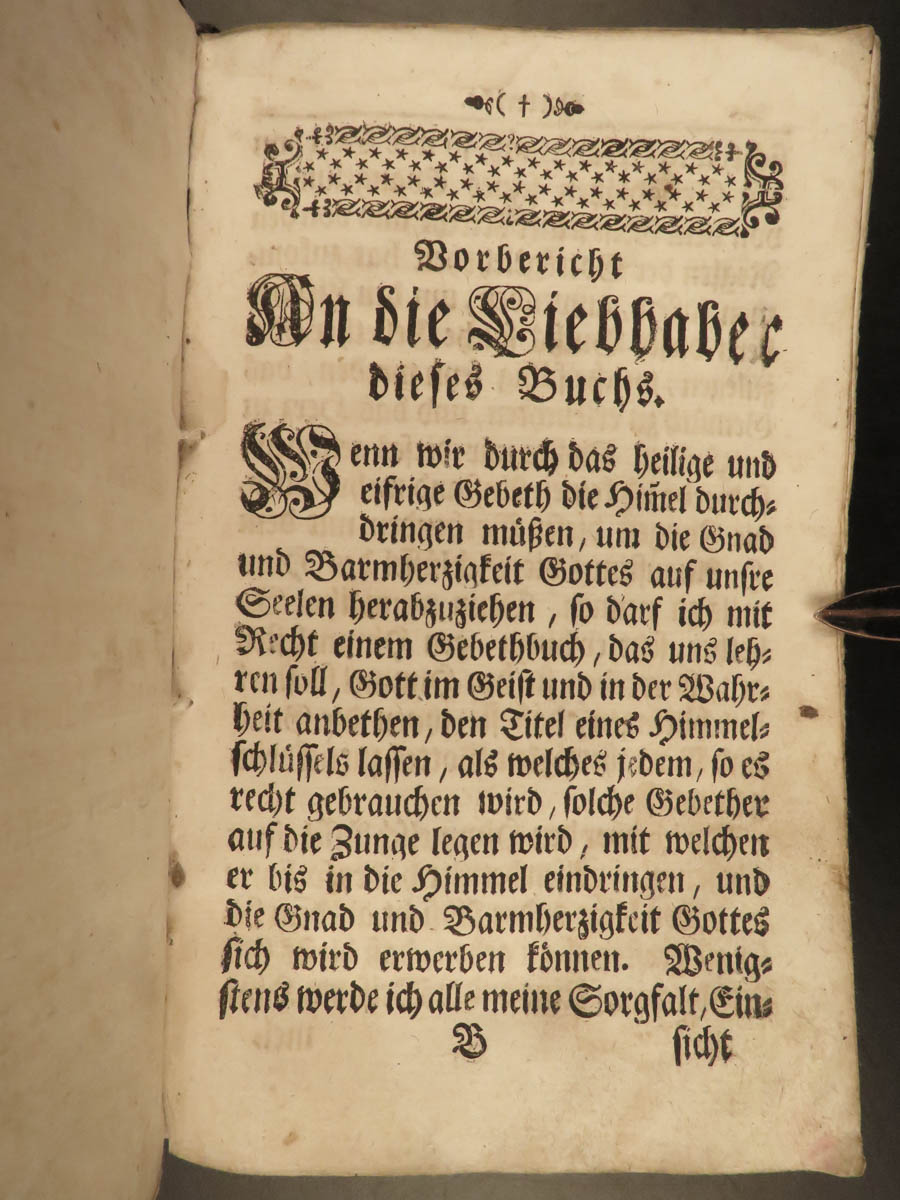 ( † )
Vorbericht
An die Liebhaber
dieses Buchs.
Wenn wir durch das heilige und
eifrige Gebeth die Him̄el durch⸗
dringen müßen, um die Gnad
und Barmherzigkeit Gottes auf unsre
Seelen herabzuziehen, so darf ich mit
Recht einem Gebethbuch, das uns leh⸗
ren soll, Gott im Geist und in der Wahr⸗
heit anbethen, den Titel eines Himmel⸗
schlüssels lassen, als welches jedem, so es
recht gebrauchen wird, solche Gebether
auf die Zunge legen wird, mit welchen
er bis in die Himmel eindringen, und
die Gnad und Barmherzigkeit Gottes
sich wird erwerben können. Wenig⸗
stens werde ich alle meine Sorgfalt, Ein⸗
B sicht